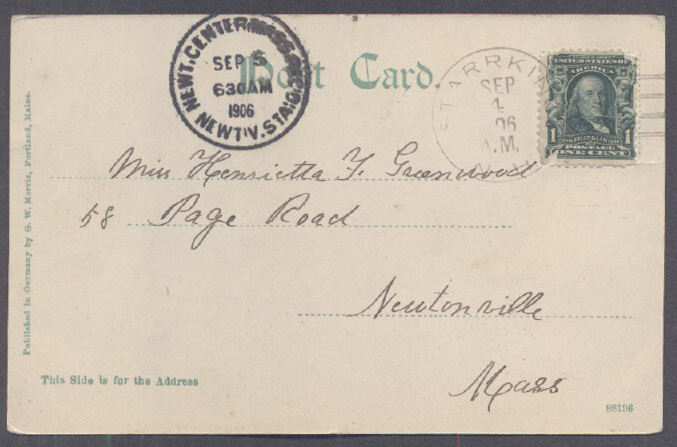 Post Card.
NEWT. CENTER MASS.
SEP 5
630AM
1906
NEWT'V. STA.
STARRKING
SEP
4
06
.M.
UNITED STATES OF
AMERICA
1 1
FRANKLIN
POSTAGE
ONE CENT
Miss Henrietta F. Greenwood
58 Page Road
Newtonville
Mass
Published in Germany by G. W. Morris, Portland, Maine.
This Side is for the Address
88196